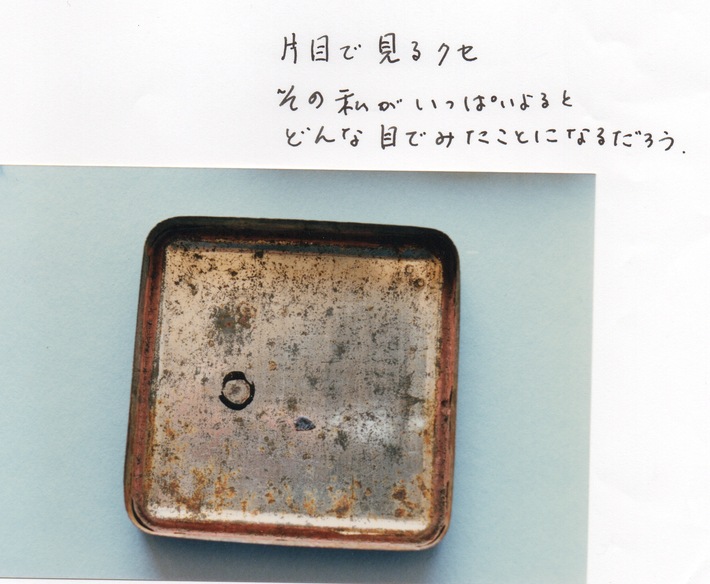 片目で見るクセ
その私がいっぱいよると
どんな目でみたことになるだろう.